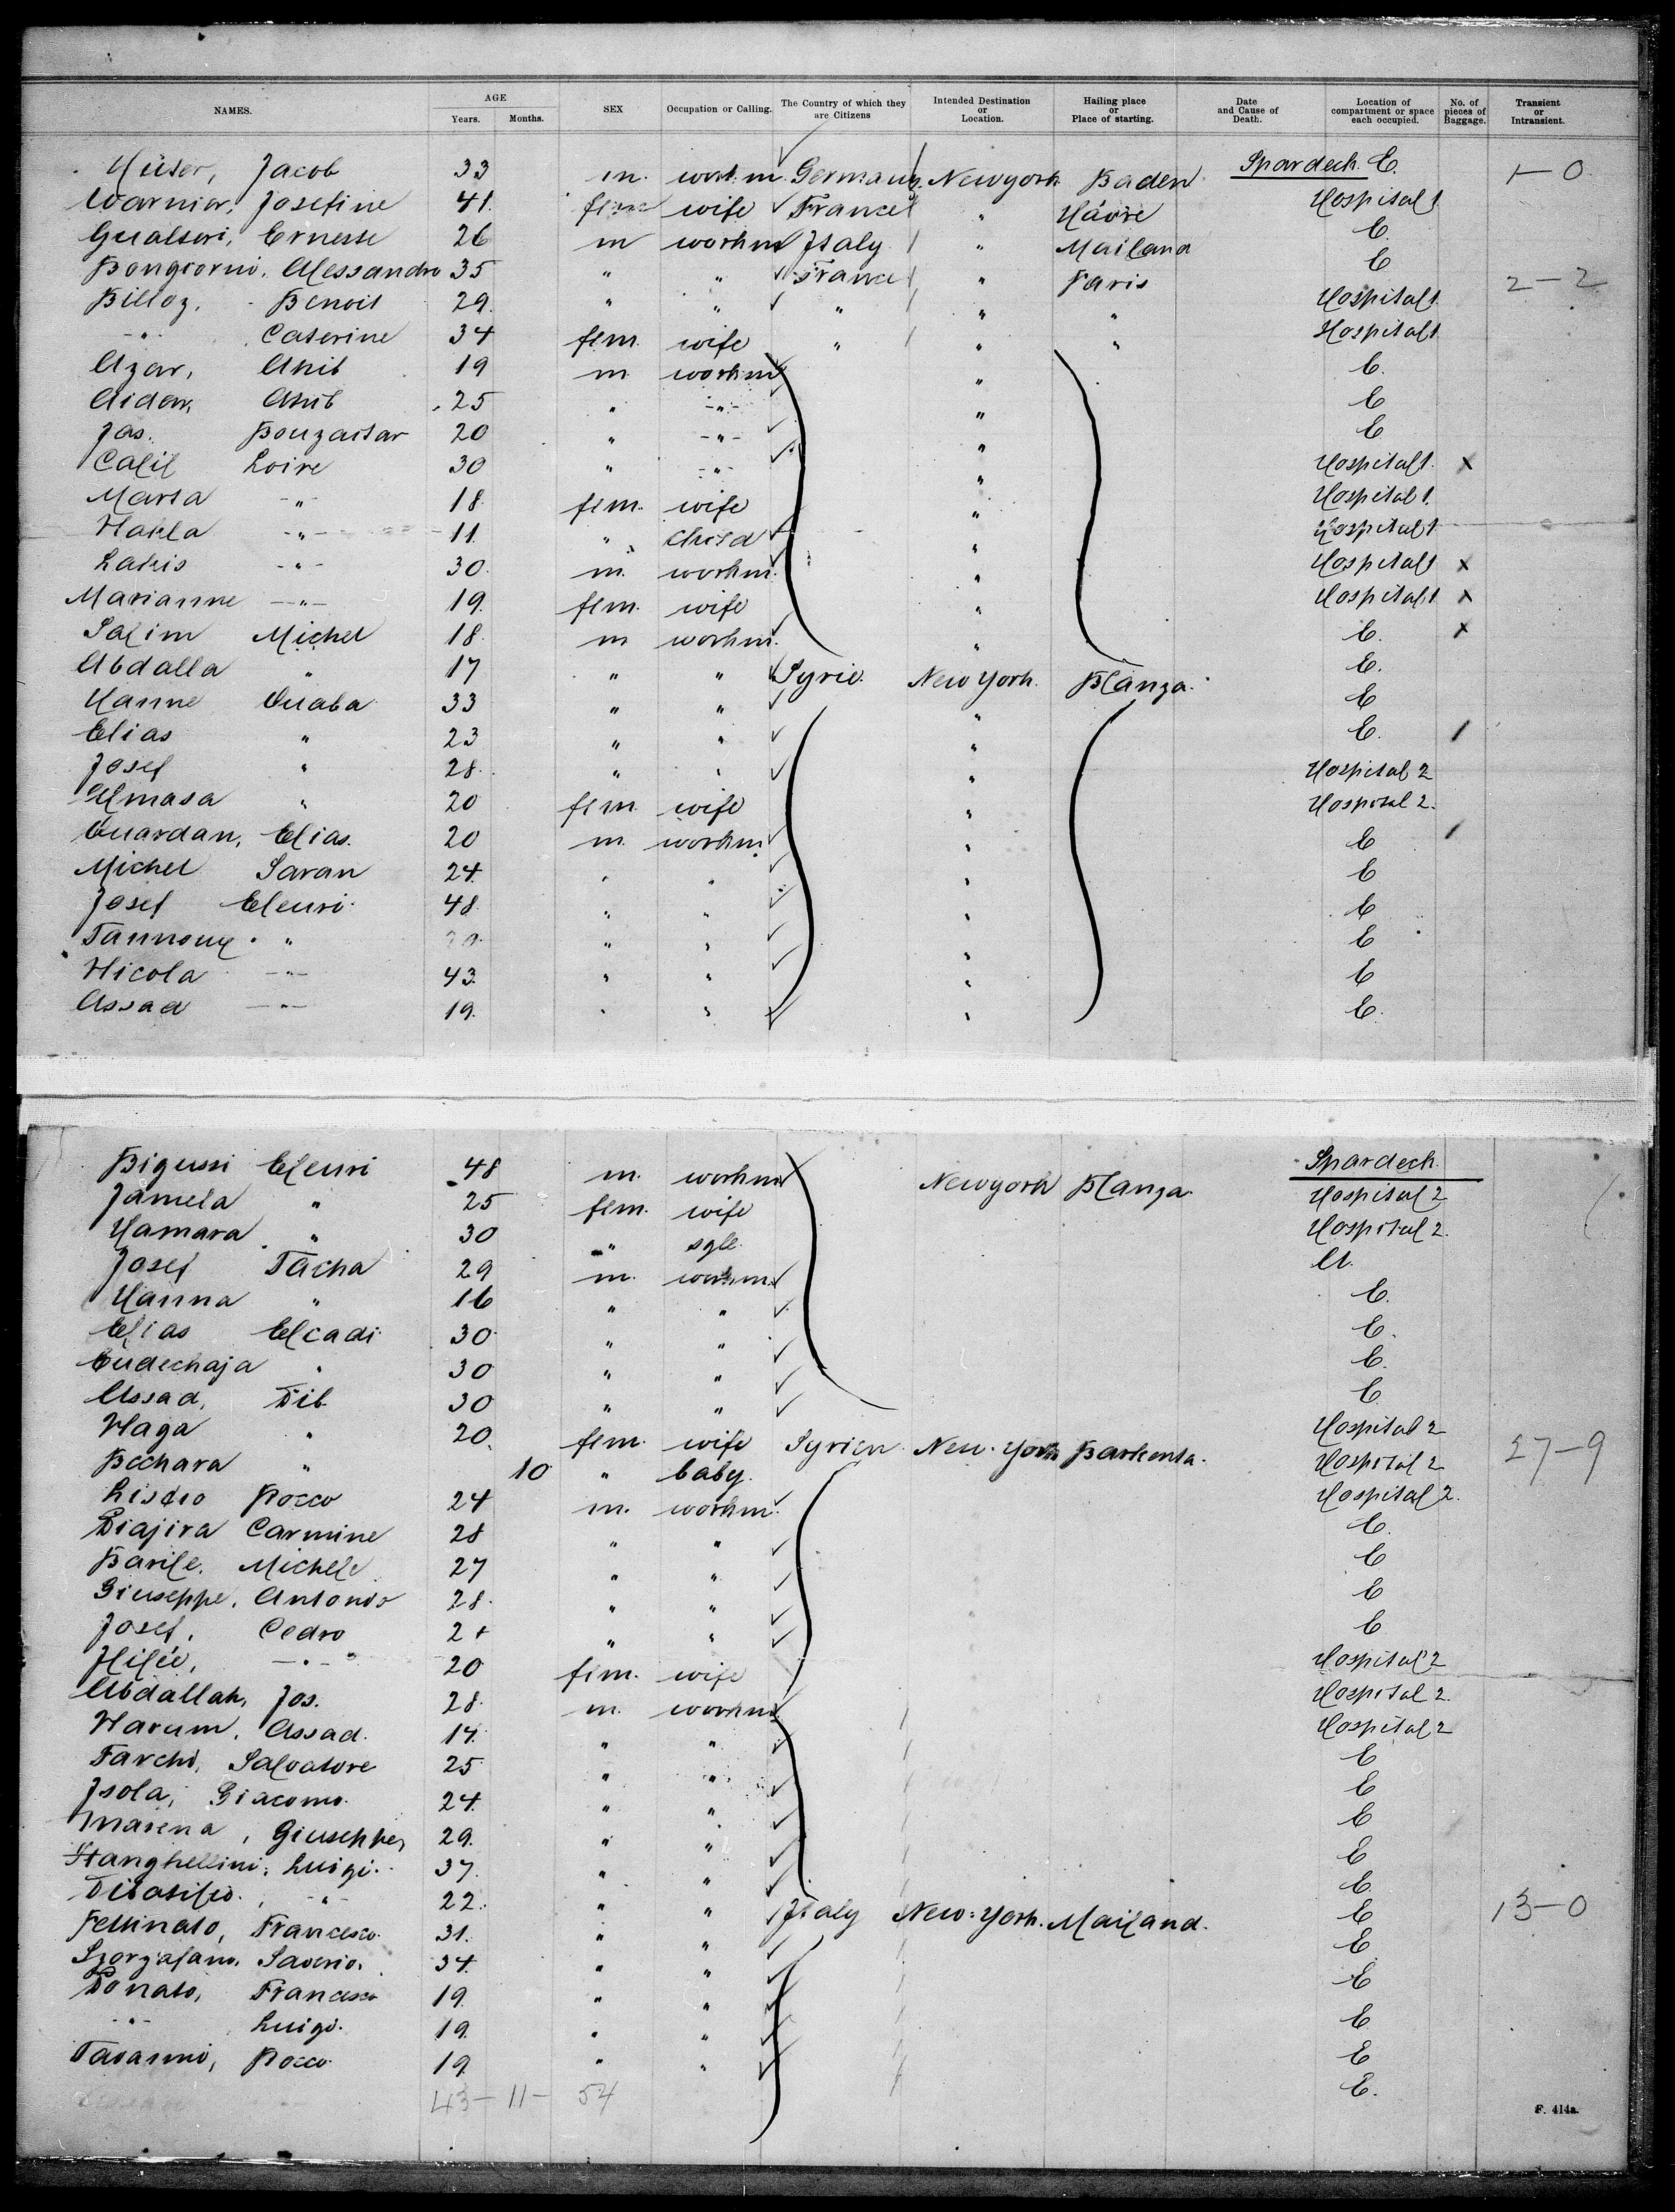 NAMES. AGE Years. Months. SEX Occupation or Calling. The Country of which they are Citizens Intended Destination or Location. Hailing place or Place of starting. Date and Cause of Death. Location of compartment or space each occupied. No. of pieces of Baggage. Transient or Intransient.
Hüser, Jacob 33 m. workm Germany Newyork Baden Spardeck E. 1-0
Warnier, Josefine 41 fem wife France " Havre Hospital 1
Gualteri, Ernesse 26 m workm Italy " Mailand E
Bongiorni, Alessandro 35 " " France " Paris E 2-2
Billoz, Benoit 29. " " " " " Hospital 1.
" Caterine 34 fem. wife " " " Hospital 1
Azar, Anib 19 m. workm " E.
Aiden, Assib 25 " -"- " E
Jos. Bouzaitar 20 " -"- " E
Calil Loire 30 " -"- " Hospital 1. x
Marta -"- 18. fem. wife " Hospital 1.
Hakla -"- 11. " child " Hospital 1
Latris -"- 30. m. workm. " Hospital 1 x
Marianne -"- 19. fem. wife " Hospital 1 x
Salim Michel 18. m workm. " E. x
Abdalla " 17 " " Syrie. New York. Blanza. E.
Hanne Ouaba 33 " " " E
Elias " 23 " " " E. /
Josef " 28. " " " Hospital 2
Almasa " 20 fem wife " Hospital 2.
Ouardan, Elias. 20 m. workm. " E /
Michel Saran 24. " " " E
Josef Eleuri. 48. " " " E
Tannous " " " " E
Nicola -"- 43. " " " E
Assad -"- 19. " " " E.
Bigussi Eleuri 48 m. workm Newyork Blanza. Spardeck.
Jamela " 25 fem. wife Hospital 2
Hamara " 30 " sgle. Hospital 2.
Josef Tacha 29 m. workm. A.
Hanna " 16 " " E.
Elias Elcadi 30 " " E.
Eudechaja " 30 " " E.
Assad, Dib 30 " " E
Haga " 20. fem. wife Syrien New-York Barkenta. Hospital 2 27-9
Bechara " 10 " baby. Hospital 2
Lisdio Rocco 24 m. workm. Hospital 2.
Diajira Carmine 28 " " E.
Barile, Michele 27 " " E
Giuseppe, Antonio 28. " " E
Josef, Cedro " " E
Hilie, -"- 20 fem. wife Hospital 2
Abdallah, Jos. 28. m. workm Hospital 2.
Harum, Assad. 14. " " Hospital 2
Farchi, Salvatore 25 " " E
Isola, Giacomo. 24. " " E
Marena, Giuseppe, 29. " " E
Stanghellini, Luigi. 37. " " E
Dibasilio, -"- 22. " " Italy New-York. Mailand. E. 13-0
Fellinato, Francesco. 31. " " E
Szorzafano. Saverio. 34. " " E
Donato, Francesco 19. " " E
-"- Luigi. 19. " " E
Tavanni, Rocco. 19. " " E
43- 11- 54 E.
F. 414a.